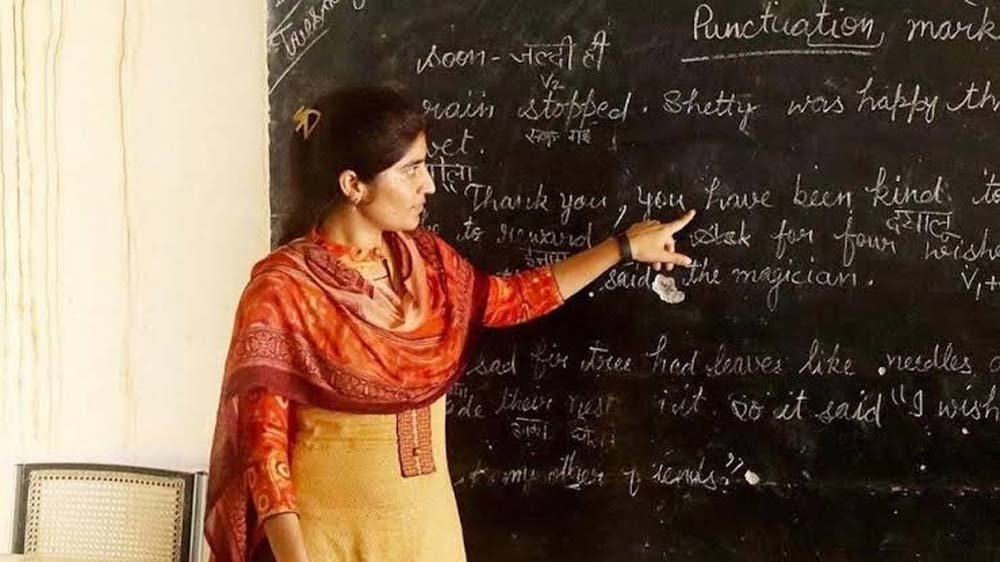 Punctuation mark
soon - जल्दी ही
V2
rain stopped. Shetty was happy th
रुक गई
wet.
गीला
Thank you, you have been kind. to
दयालु
to reward ask for four wishe
इनाम
said the magician. V1+
sad fir tree had leaves like needles
their So it said "I wish
my other friends."